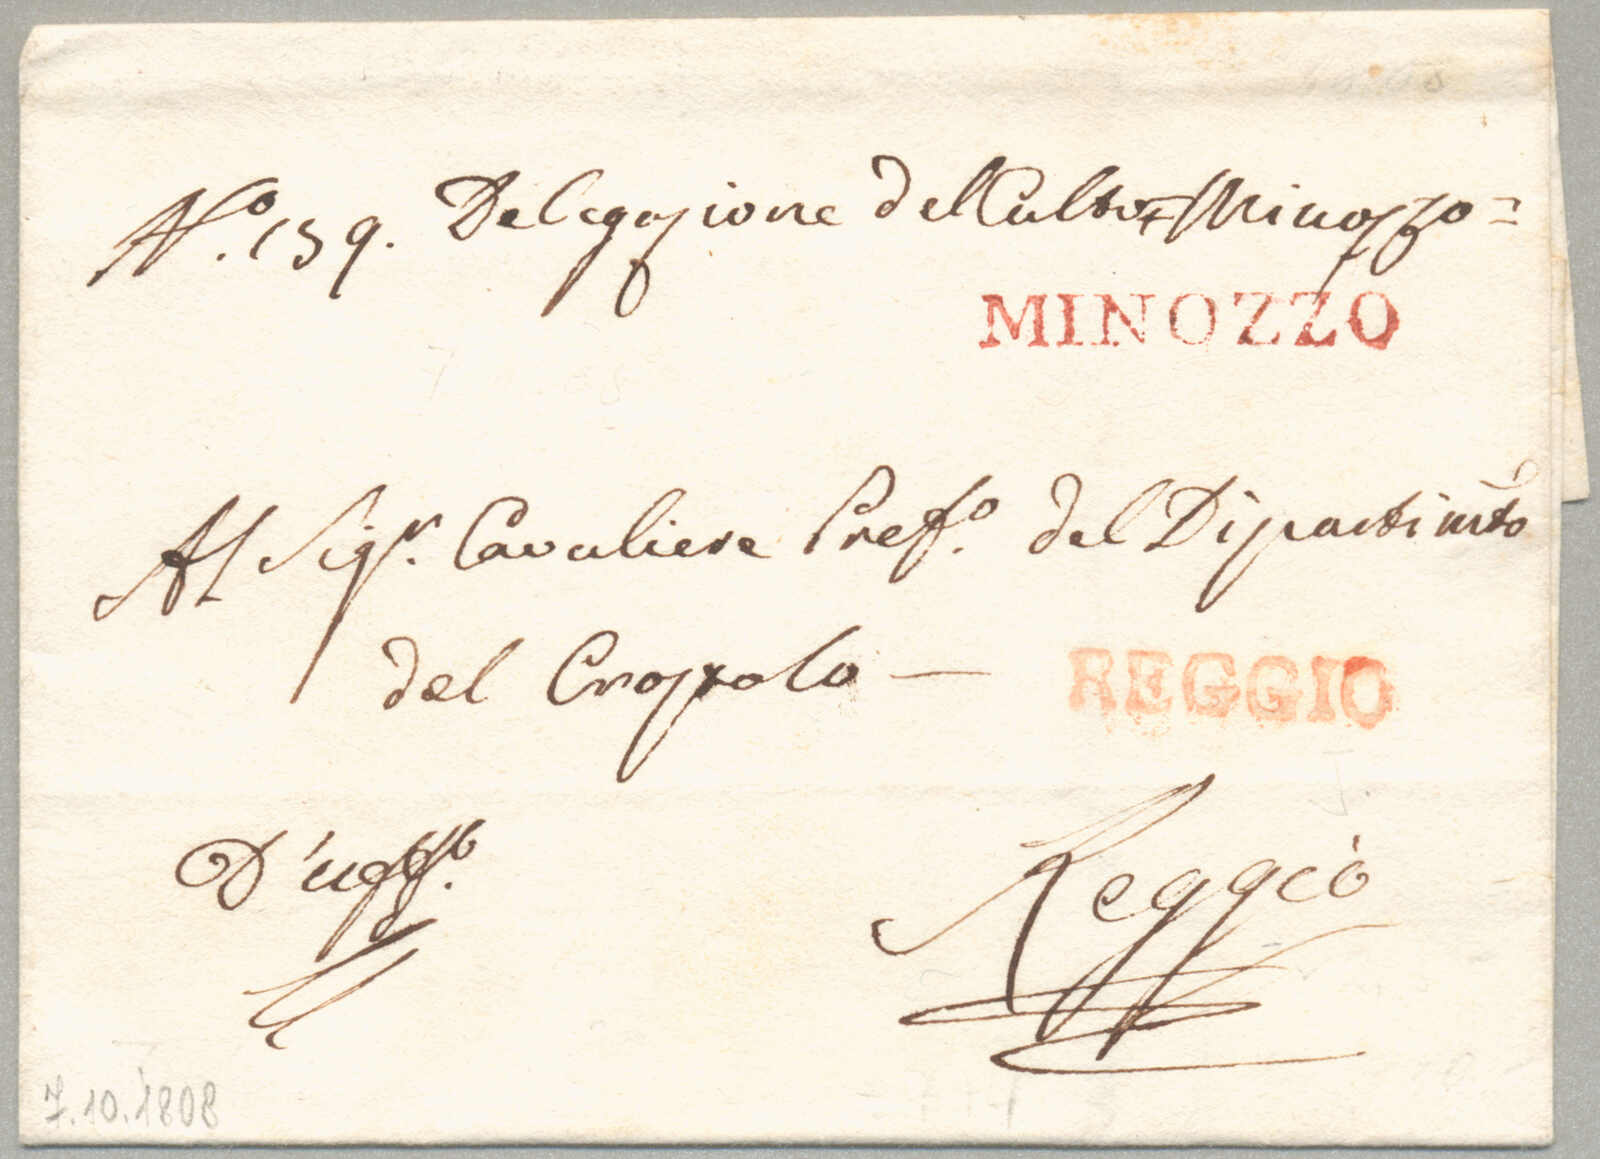 N.o 159. Delegazione del Culto = Minozzo =
MINOZZO
Al Sigr. Cavaliere Prefo. del Dipartimto
del Crostolo —
REGGIO
D'uffo.
Reggio
7.10.1808